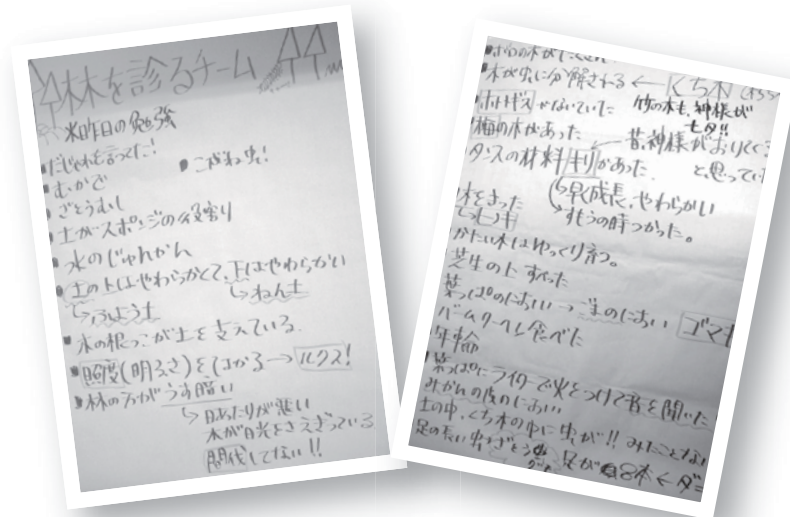 林を診るチーム
米昨日の勉強
・だじゃれを言ってた!
・こがね虫!
・むかで
・ざとうむし
・土がスポンジの役割り
・水のじゅんかん
・土の上はやわらかくて、下はやわらかい
↳ふよう土 ↳ねん土
・木の根っこが土を支えている。
・照度(明るさ)をはかる→ルクス!
・林の方がうす暗い
↳日あたりが悪い
木が日光をさえぎっている
間伐してない!!
木が虫に分解される ← くち木
・ホトトギスがないていた 竹の木も、神様が
七夕!!
梅の木があった 昔、神様がおりてく
と思ってい
タンスの材料キリがあった。
↳早く成長、やわらかい
すもうの時つかった。
木をきった
かたい木はゆっくり育つ。
芝生の上すべった
葉っぱのにおい→ごまのにおい ゴマキ
バームクーヘン食べた
年輪
葉っぱにライターで火をつけて音を聞いた
みかんの皮のにおい
土の中、くち木の中に虫が!! みたことない
足の長い虫 ざとう虫 足が8本 ← ダニ